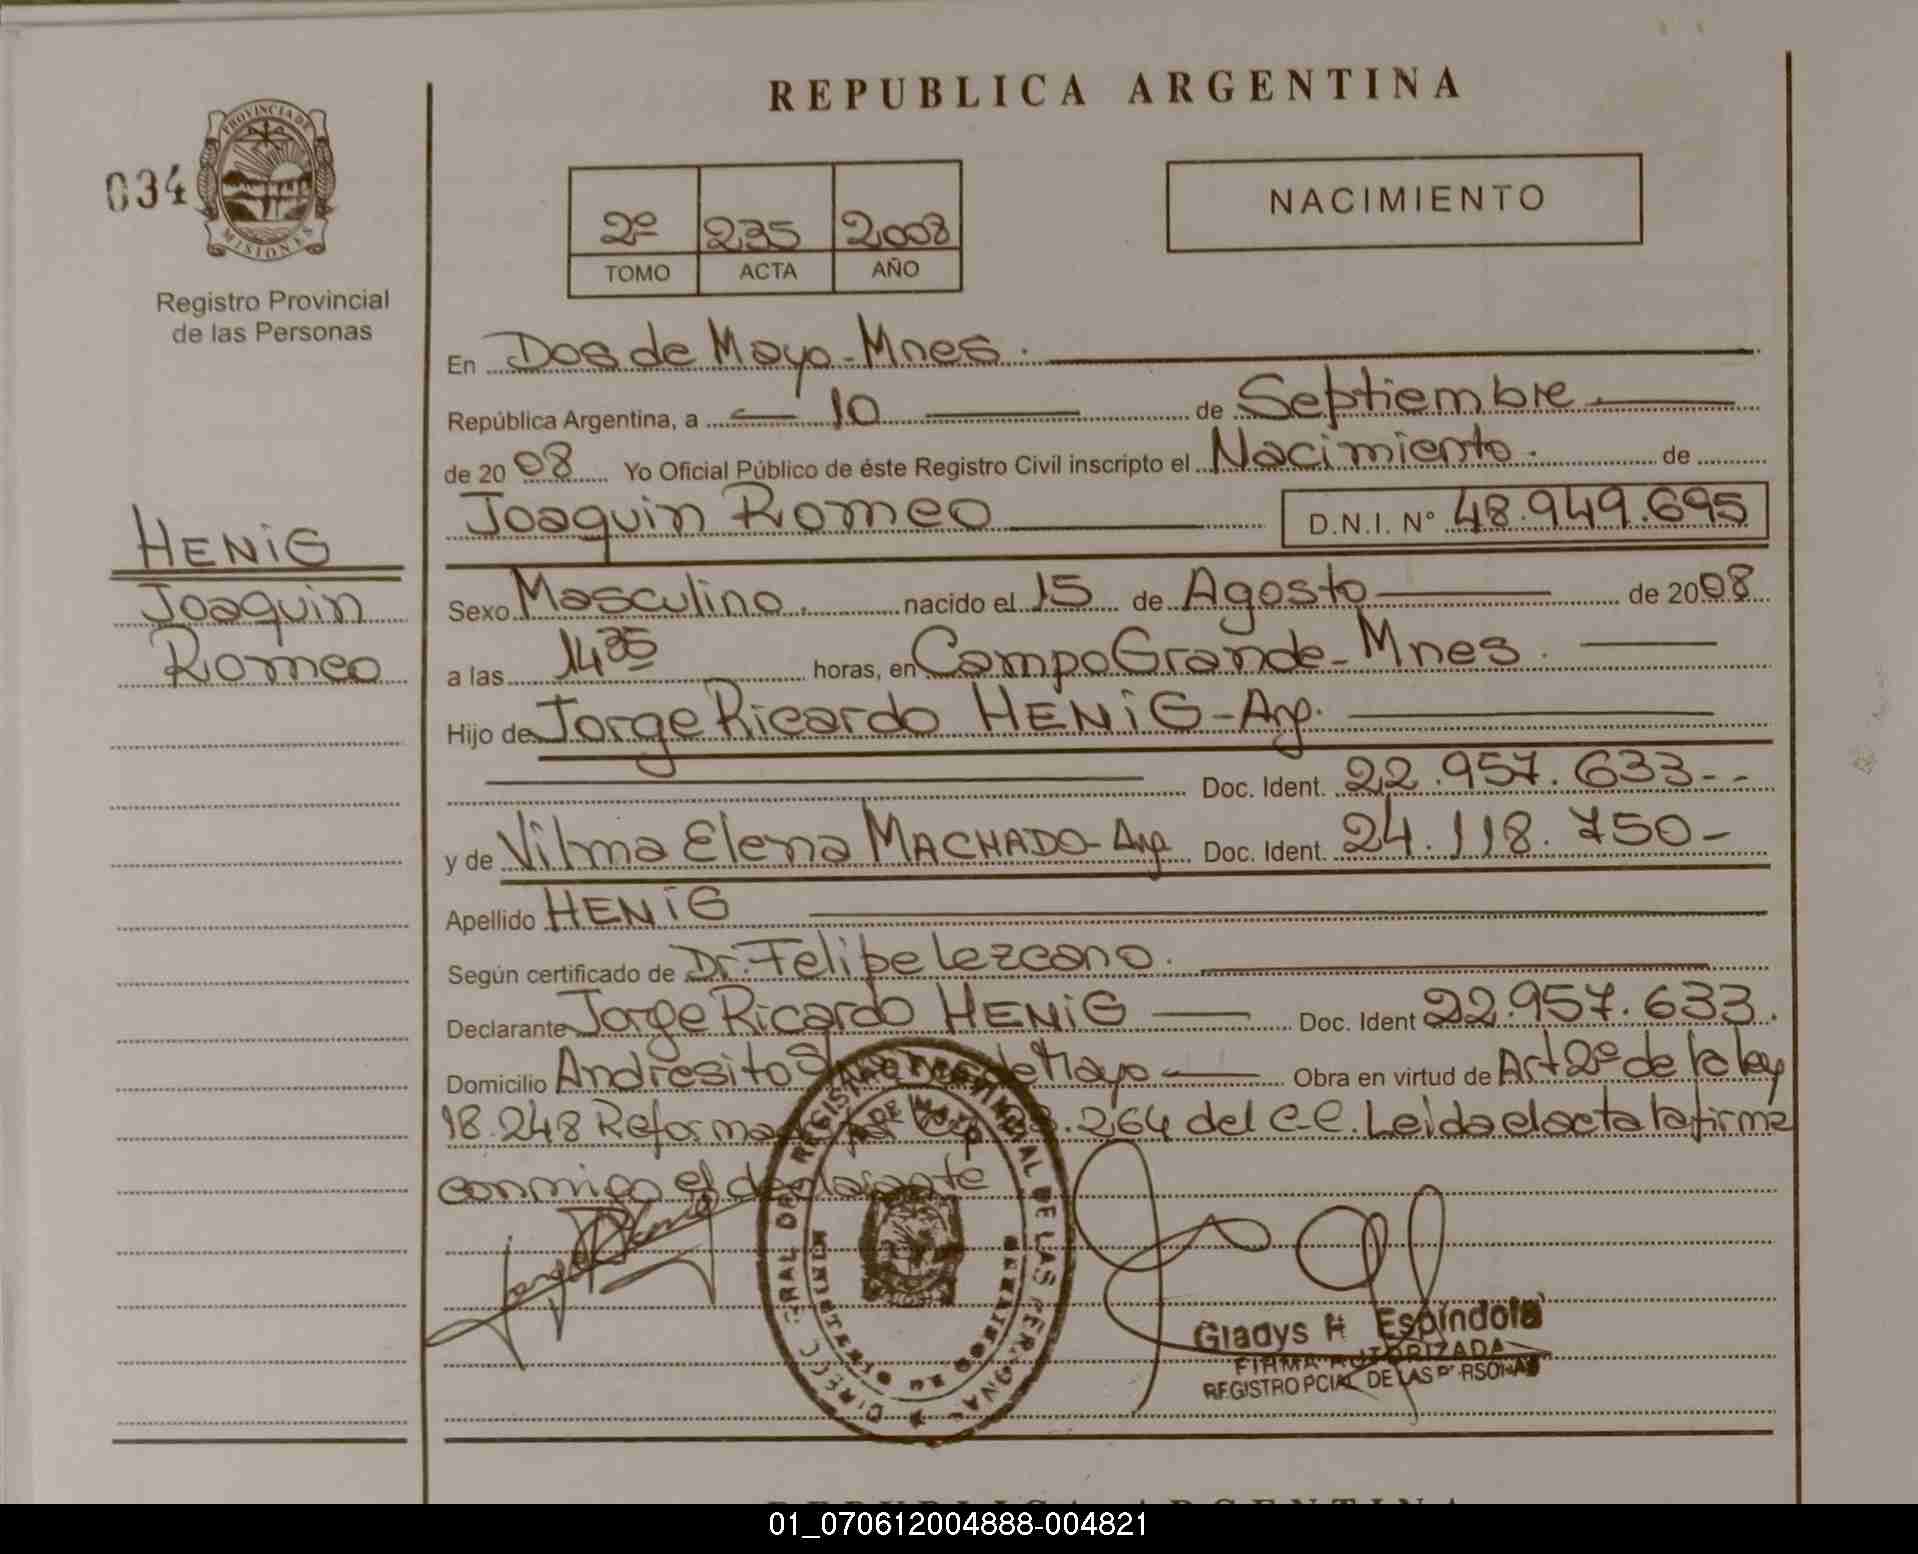 REPUBLICA ARGENTINA
PROVINCIA DE
MISIONES
034
Registro Provincial
de las Personas
2º 235 2008
TOMO ACTA AÑO
NACIMIENTO
En Dos de Mayo - Mnes.
República Argentina, a 10 de Septiembre
de 2008 Yo Oficial Público de éste Registro Civil inscripto el Nacimiento. de
Joaquin Romeo D.N.I. Nº 48.949.695
HENIG
Joaquin
Romeo
Sexo Masculino. nacido el 15 de Agosto de 2008
a las 14 35 horas, en Campo Grande - Mnes.
Hijo de Jorge Ricardo HENIG - Arg.
Doc. Ident. 22.957.633--
y de Vilma Elena MACHADO - Arg. Doc. Ident. 24.118.750-
Apellido HENIG
Según certificado de Dr. Felipe Lezcano.
Declarante Jorge Ricardo HENIG Doc. Ident 22.957.633.
Domicilio Andresito de Mayo Obra en virtud de Art 2º de la ley
18.248 .264 del C.C. Leida el acta la firma
conmigo el declarante
Gladys H Espíndola
FIRMA AUTORIZADA
REGISTRO PCIAL DE LAS PERSONAS
REPUBLICA ARGENTINA
01_070612004888-004821